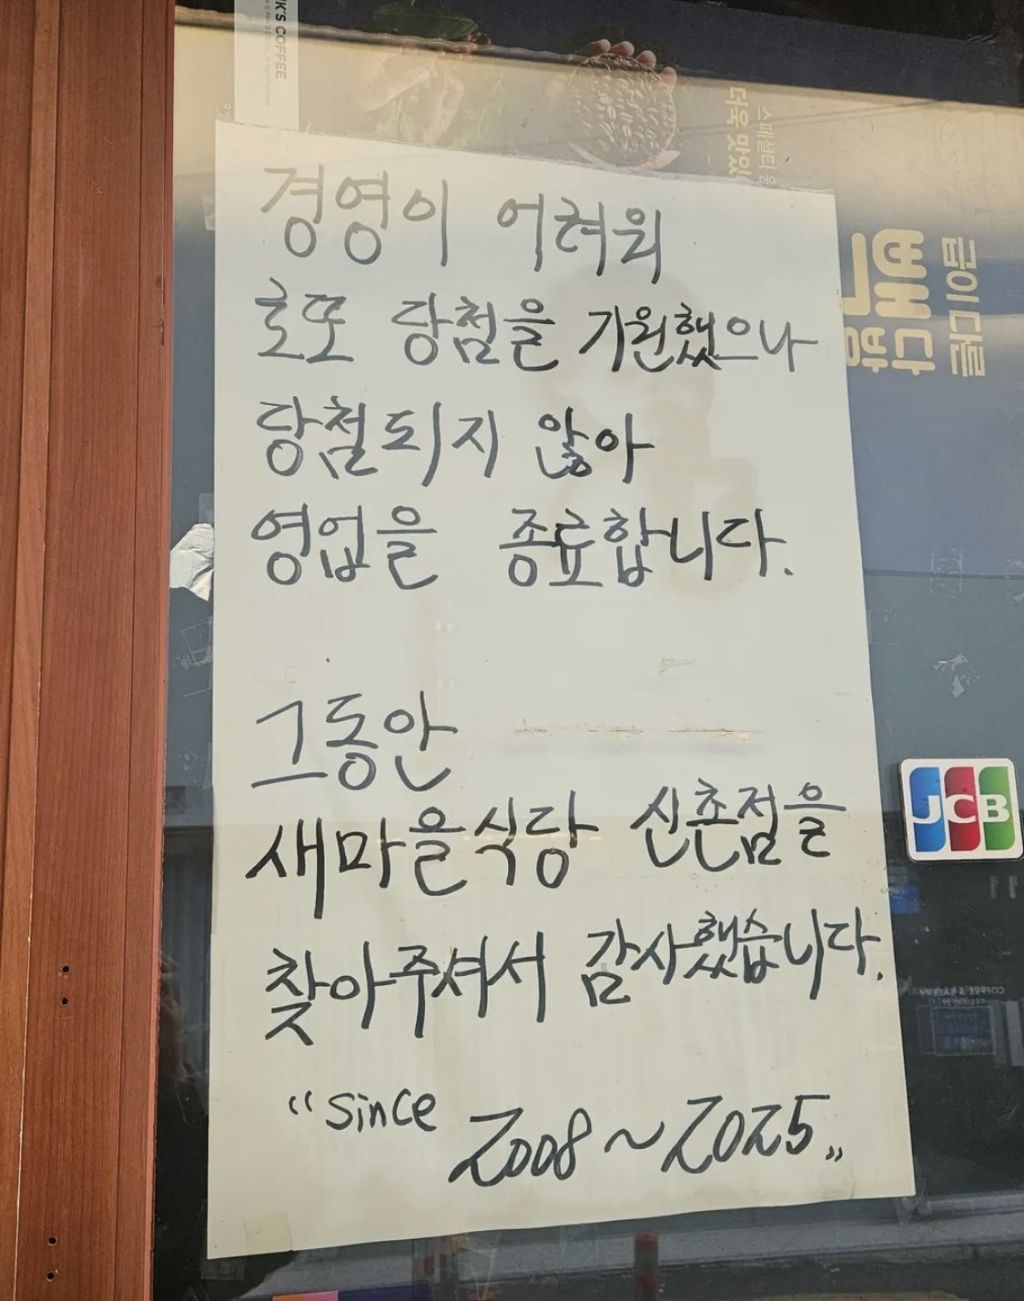 K'S COFFEE
경영이 어려워
로또 당첨을 기원했으나
당첨되지 않아
영업을 종료합니다.
그동안
새마을식당 신촌점을
찾아주셔서 감사했습니다.
"since 2008~2025"
스페셜티
더욱 맛있
빽다방
JCB